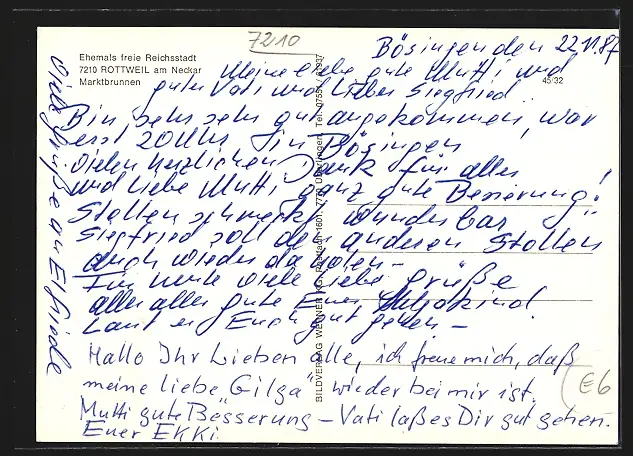 7210
Ehemals freie Reichsstadt
7210 ROTTWEIL am Neckar
Marktbrunnen
45/32
Bösingen den 22.11.87
Meine liebe gute Mutti und
guter Vati und lieber Siegfried
Bin sehr sehr gut angekommen, war
erst 20 Uhr in Bösingen
vielen herzlichen Dank für alles
und liebe Mutti ganz gute Besserung!
Stollen schmeckt wunderbar
Siegfried soll den anderen Stollen
auch wieder da holen –
Für heute viele liebe Grüße
alles alles gute Euer
Laut er Euch gut gehen –
Hallo Ihr Lieben alle, ich freue mich, daß
meine liebe "Gilga" wieder bei mir ist.
Mutti gute Besserung – Vati laßes Dir gut gehen.
Euer EKKi
Viele Grüße an Elfriede
BILDVERLAG WERNER KG, Postfach 1601, 7770 Überlingen, Tel. 07551/
€6